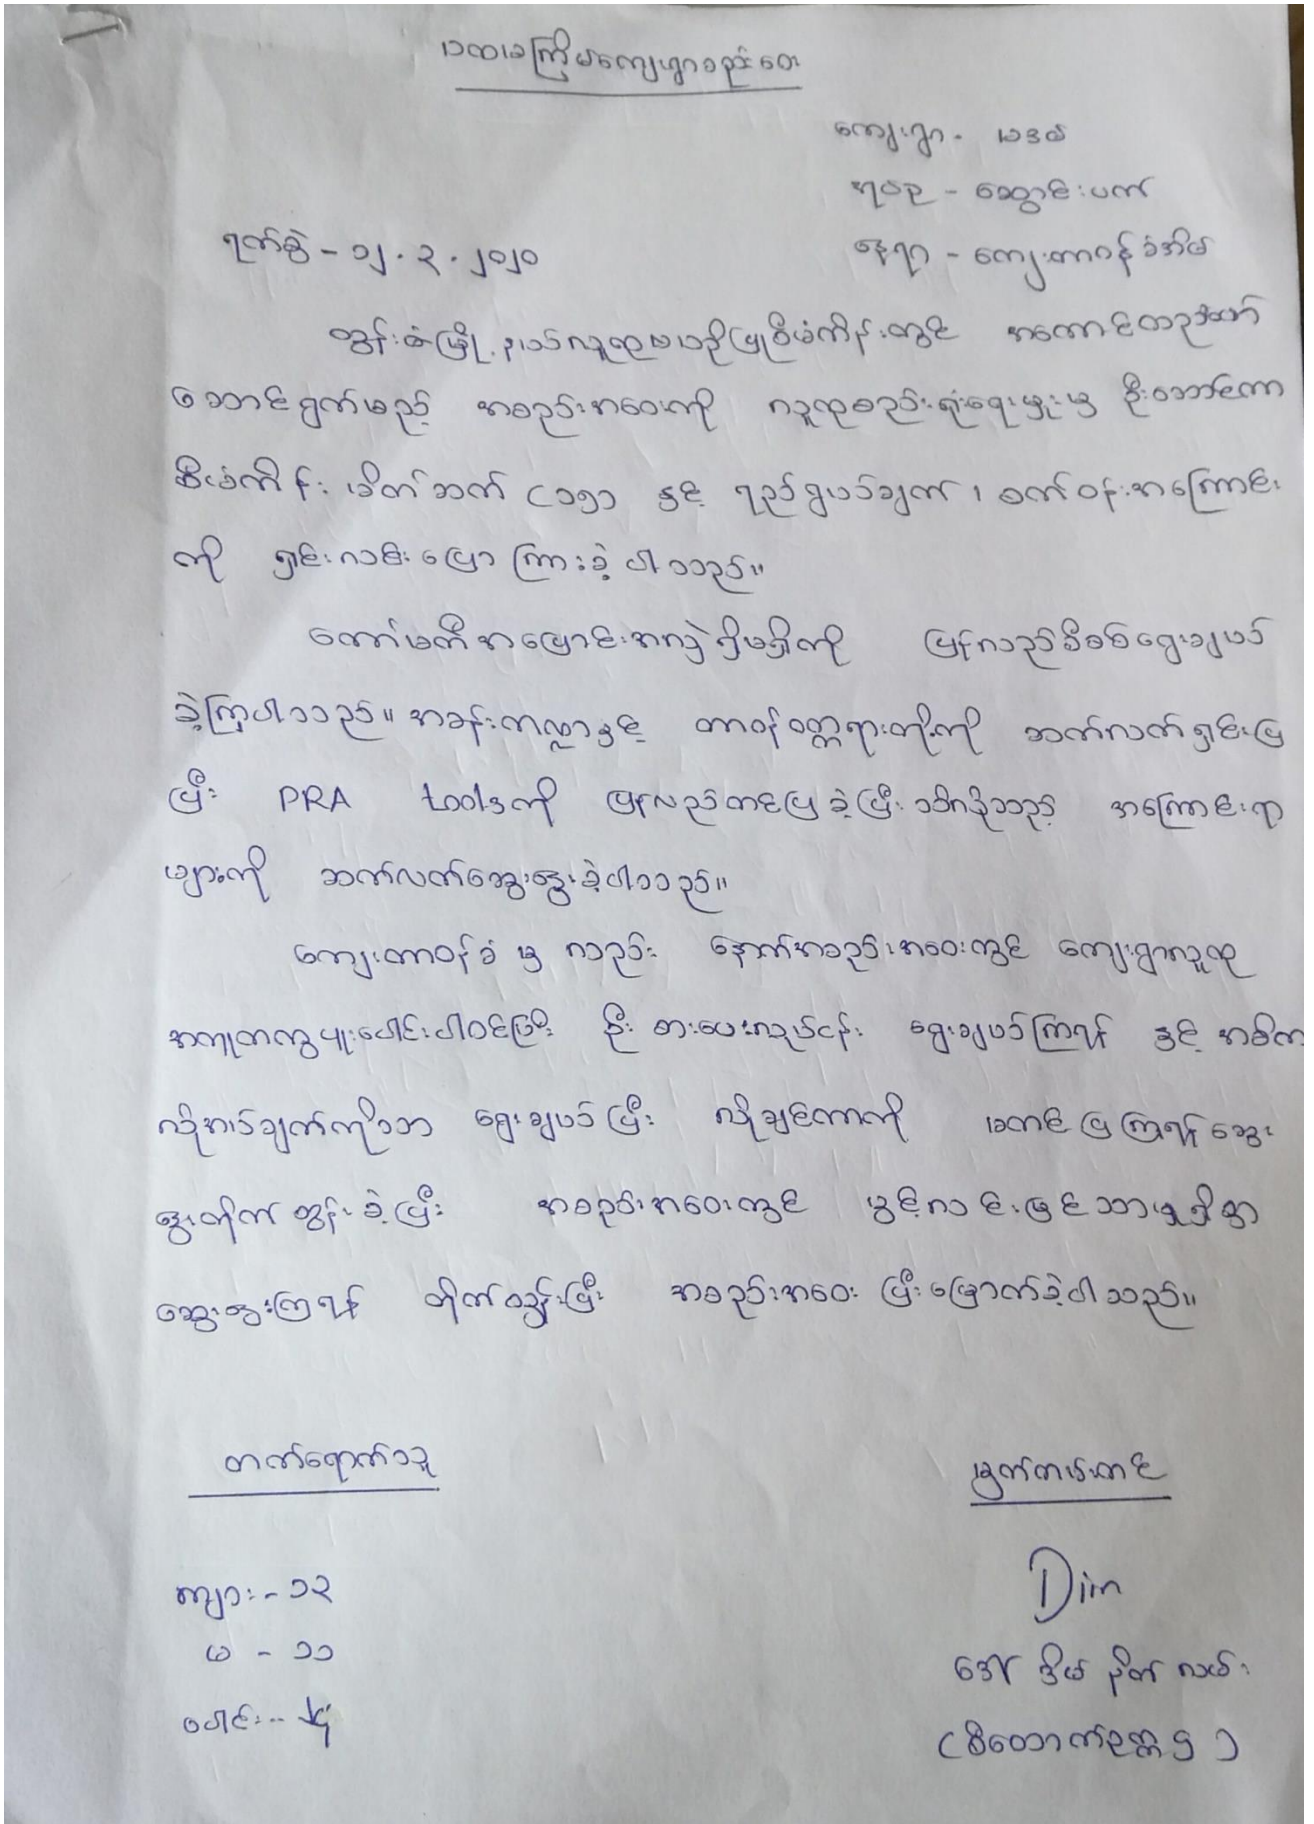 ပထမအကြိမ်ကျေးရွာစည်းဝေး
ကျေးရွာ -
အုပ်စု - ဆွောင်းပက်
ရက်စွဲ - ၁၂.၃.၂၀၂၀
နေရာ - ကျေးတာဝန်ခံအိမ်
တွန်းဇံမြို့နယ်လူထုဗဟိုပြုစီမံကိန်းတွင် အကောင်အထည်ဖော်
ဆောင်ရွက်မည့် အစည်းအဝေးကို လူထုစည်းရုံးရေးမှူးမှ
စီမံကိန်း မိတ်ဆက် နှင့် ရည်ရွယ်ချက်၊ စက်ဝန်းအကြောင်း
ကို ရှင်းလင်းပြောကြားခဲ့ပါသည်။
ကော်မတီအပြောင်းအလဲရှိမရှိကို ပြန်လည်စိစစ်ရွေးချယ်
ခဲ့ကြပါသည်။ အခန်းကဏ္ဍနှင့် တာဝန်ဝတ္တရားတို့ကို ဆက်လက်ရှင်းပြ
ပြီး PRA toolsကို ပြန်လည်တင်ပြခဲ့ပြီး သိလိုသည့် အကြောင်းရာ
များကို ဆက်လက်ဆွေးနွေးခဲ့ပါသည်။
ကျေးတာဝန်ခံမှ လည်း နောက်အစည်းအဝေးတွင် ကျေးရွာလူထု
အကုတကွပူးပေါင်းပါဝင်ပြီး ဦးစားပေးလုပ်ငန်း ရွေးချယ်ကြရန် နှင့် အဓိက
လိုအပ်ချက်ကိုသာ ရွေးချယ်ပြီး လိုချင်တာကို မတင်ပြကြရန် ဆွေး
နွေးတိုက်တွန်းခဲ့ပြီး အစည်းအဝေးတွင် ပွင့်လင်းမြင်သာမှုရှိစွာ
ဆွေးနွေးကြရန် တိုက်တွန်းပြီး အစည်းအဝေး ပြီးမြောက်ခဲ့ပါသည်။
တက်ရောက်သူ
မှတ်တမ်းတင်
ကျား - ၁၃
Dim
မ - ၁၁
ဒေါ် ဒိမ် နိတ် လမ်း
ပေါင်း - ၂၄
(စီထောက်ဥက္ကဌ)